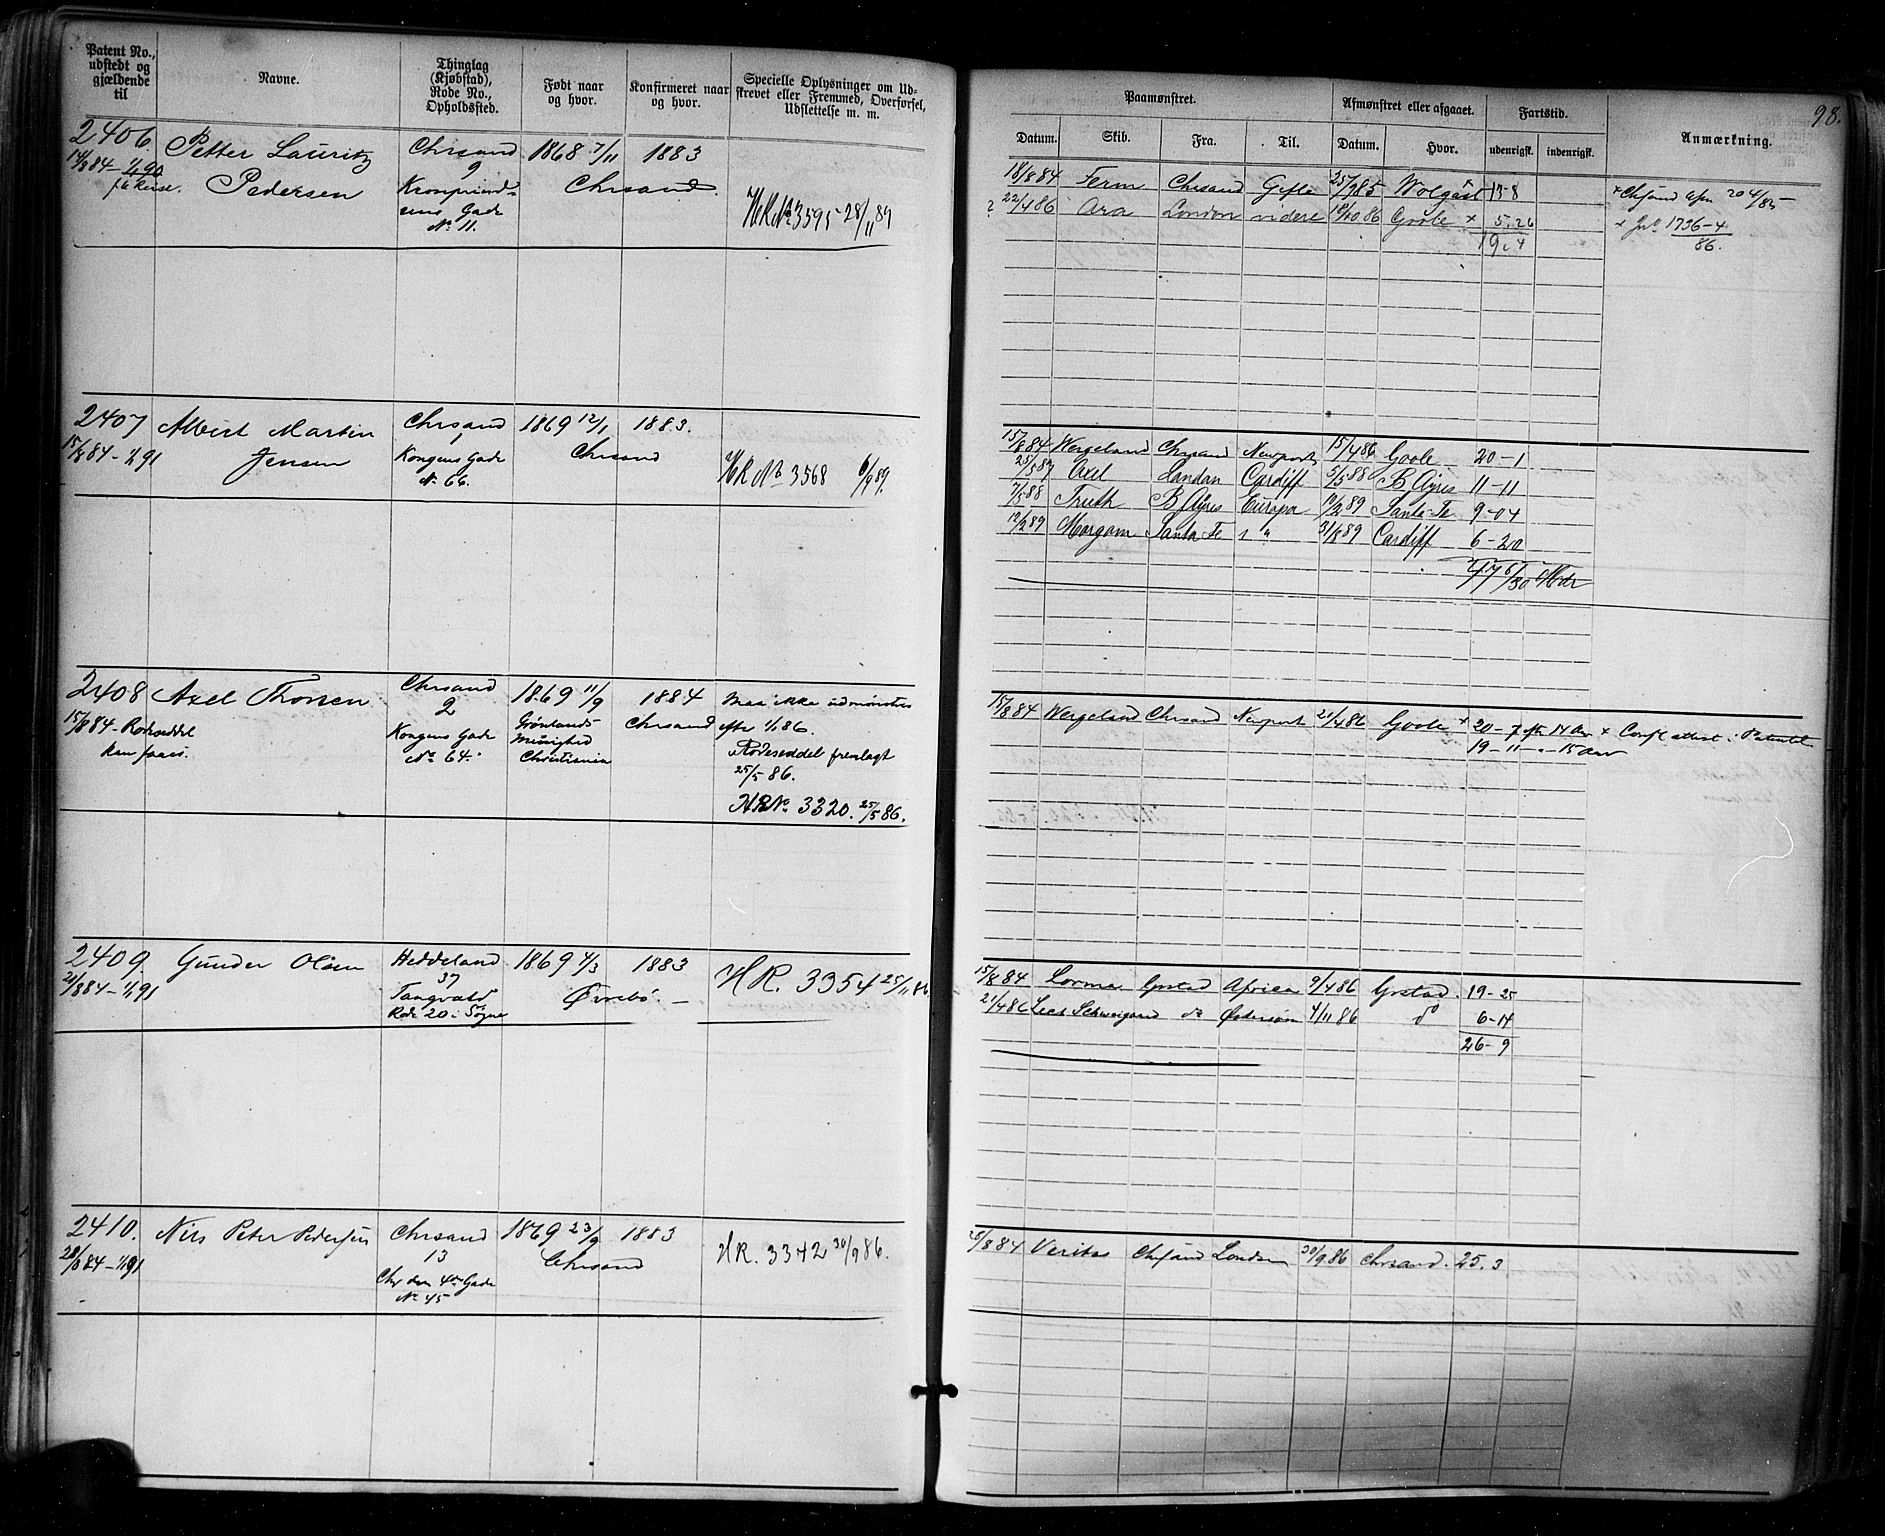 Patent No., udstedt og gjældende til
Navne.
Thinglag (Kjøbstad), Rode No., Opholdssted.
Født naar og hvor.
Konfirmeret naar og hvor.
Specielle Oplysninger om Udskrevet eller Fremmed, Overførsel, Udslettelse m. m.
2406 Petter Lauritz Chrsand 1868 7/11 1883
14/8 84 – 1/1 90 Pedersen 9 Chrsand.
Kronprinds-
ens Gade
No 11.
HR No 3595 28/11 89
2407 Albert Martin Chrsand 1869 12/1 1883.
15/8 84 – 1/1 91 Jensen 1 Chrsand
Kongens Gade
No 66.
HR No 3568 6/9 89.
2408 Axel Thorsen Chrsand 1869 11/9 1884 Maa ikke udmønstres
15/8 84 – Rodeseddel 2 Grønlands- Chrsand efter 1/1 86.
kun faaes. Kongens Gade Rodeseddel fremlagt
No 64. Christiania 25/5 86.
HR No 3320. 25/5 86.
2409. Gunder Olsen Heddeland 1869 4/3 1883 HR. 3354 25/11 86
21/8 84 – 1/1 91 37 Øvrebø. –
Tangvald
Rode 20 i Søgne
2410. Nils Peter Pedersen Chrsand 1869 23/9 1883 HR. 3342 30/9 86.
28/8 84 – 1/1 91 13 Chrsand
Chr den 4des Gade
No 45
98.
Paamønstret.
Afmønstret eller afgaaet.
Fartstid.
Anmærkning.
Datum. Skib. Fra. Til. Datum. Hvor. udenrigsk. indenrigsk.
18/8 84 Ferm Chrsand Gefle 25/9 85 Wolgast x 13-8
? 22/4 86 Ara London videre 18/10 86 Goole x 5.26
19.4
x Jnl 1736–4
86.
15/8 84 Wergeland Chrsand Newport 15/4 86 Goole 20-1
25/5 87 Axel London Cardiff 5/5 88 B Ayres 11-11
7/5 88 Truth B Ayres Europa 11/2 89 Santa Fe 9-04
12/2 89 Morgam Santa Fe " 31/8 89 Cardiff 6-20
47 6/30 Mdr
15/8 84 Wergeland Chrsand Newport 21/4 86 Goole x 20–7 efter 14 Aar x Conf. attest i Patentet
19–11 – " – 15 Aar
15/8 84 Lorma Grstad Africa 9/4 86 Grstad 19-25
21/4 86 Schweigaard do Østersøen 4/11 86 do 6-14
26-9
28/8 84 Veritas Chrsand London 30/9 86 Chrsand. 25.3